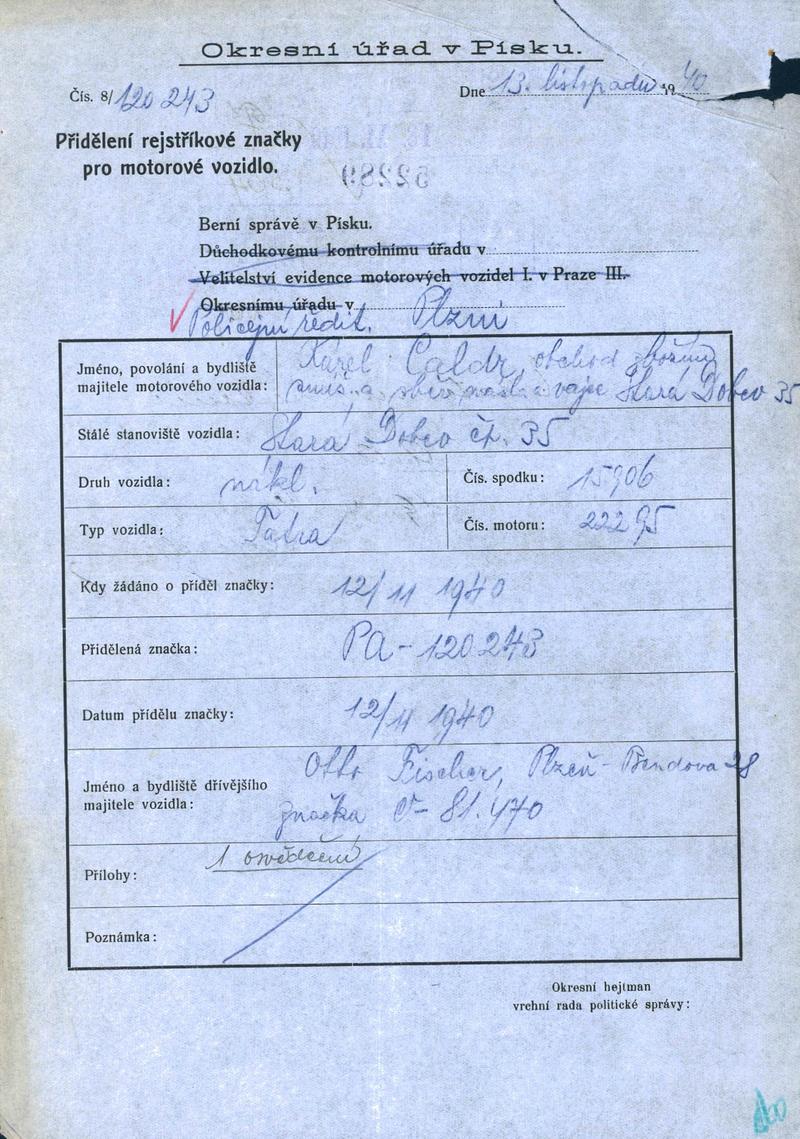 Okresní úřad v Písku.
Čís. 8/120243
Dne 13. listopadu 1940
Přidělení rejstříkové značky
pro motorové vozidlo.
52289
Berní správě v Písku.
Důchodkovému kontrolnímu úřadu v
Velitelství evidence motorových vozidel I. v Praze III.
Okresnímu úřadu v
Policejní ředit. Plzni
Jméno, povolání a bydliště
majitele motorového vozidla:
Karel obchod zbožím
smíš. a vajec Stará Dobev 35
Stálé stanoviště vozidla: Stará Dobev čp. 35
Druh vozidla: nákl. Čís. spodku: 15906
Typ vozidla: Tatra Čís. motoru: 22295
Kdy žádáno o příděl značky: 12/11 1940
Přidělená značka: PA-120243
Datum přídělu značky: 12/11 1940
Jméno a bydliště dřívějšího
majitele vozidla:
Otto Fischer, Plzeň - Bendova 28
značka Č-81.470
Přílohy: 1 osvědčení
Poznámka:
Okresní hejtman
vrchní rada politické správy: